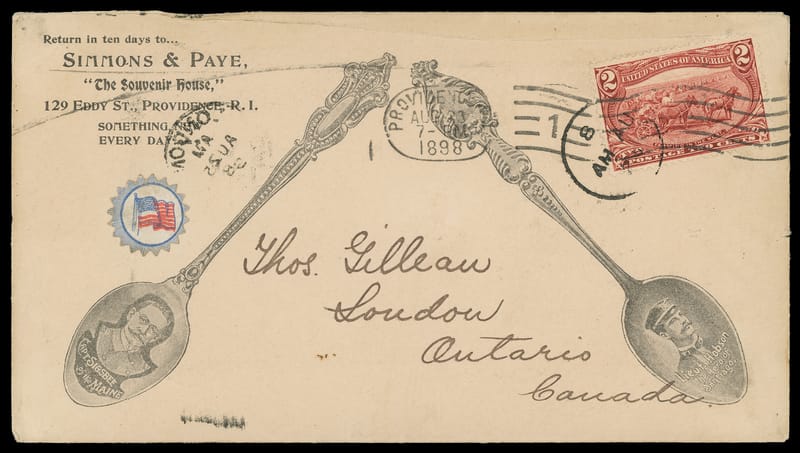 Return in ten days to...
SIMMONS & PAYE,
"The Souvenir House,"
129 EDDY ST., PROVIDENCE, R. I.
SOMETHING
EVERY DAY
PROVIDENCE
AUG 23
7-
1898
1
2
2
UNITED STATES OF AMERICA
POSTAGE TWO CENTS
8
AM
AU
Thos. Gillean
London
Ontario
Canada
CAPT SIGSBEE
OF THE MAINE
Lieut. Hobson